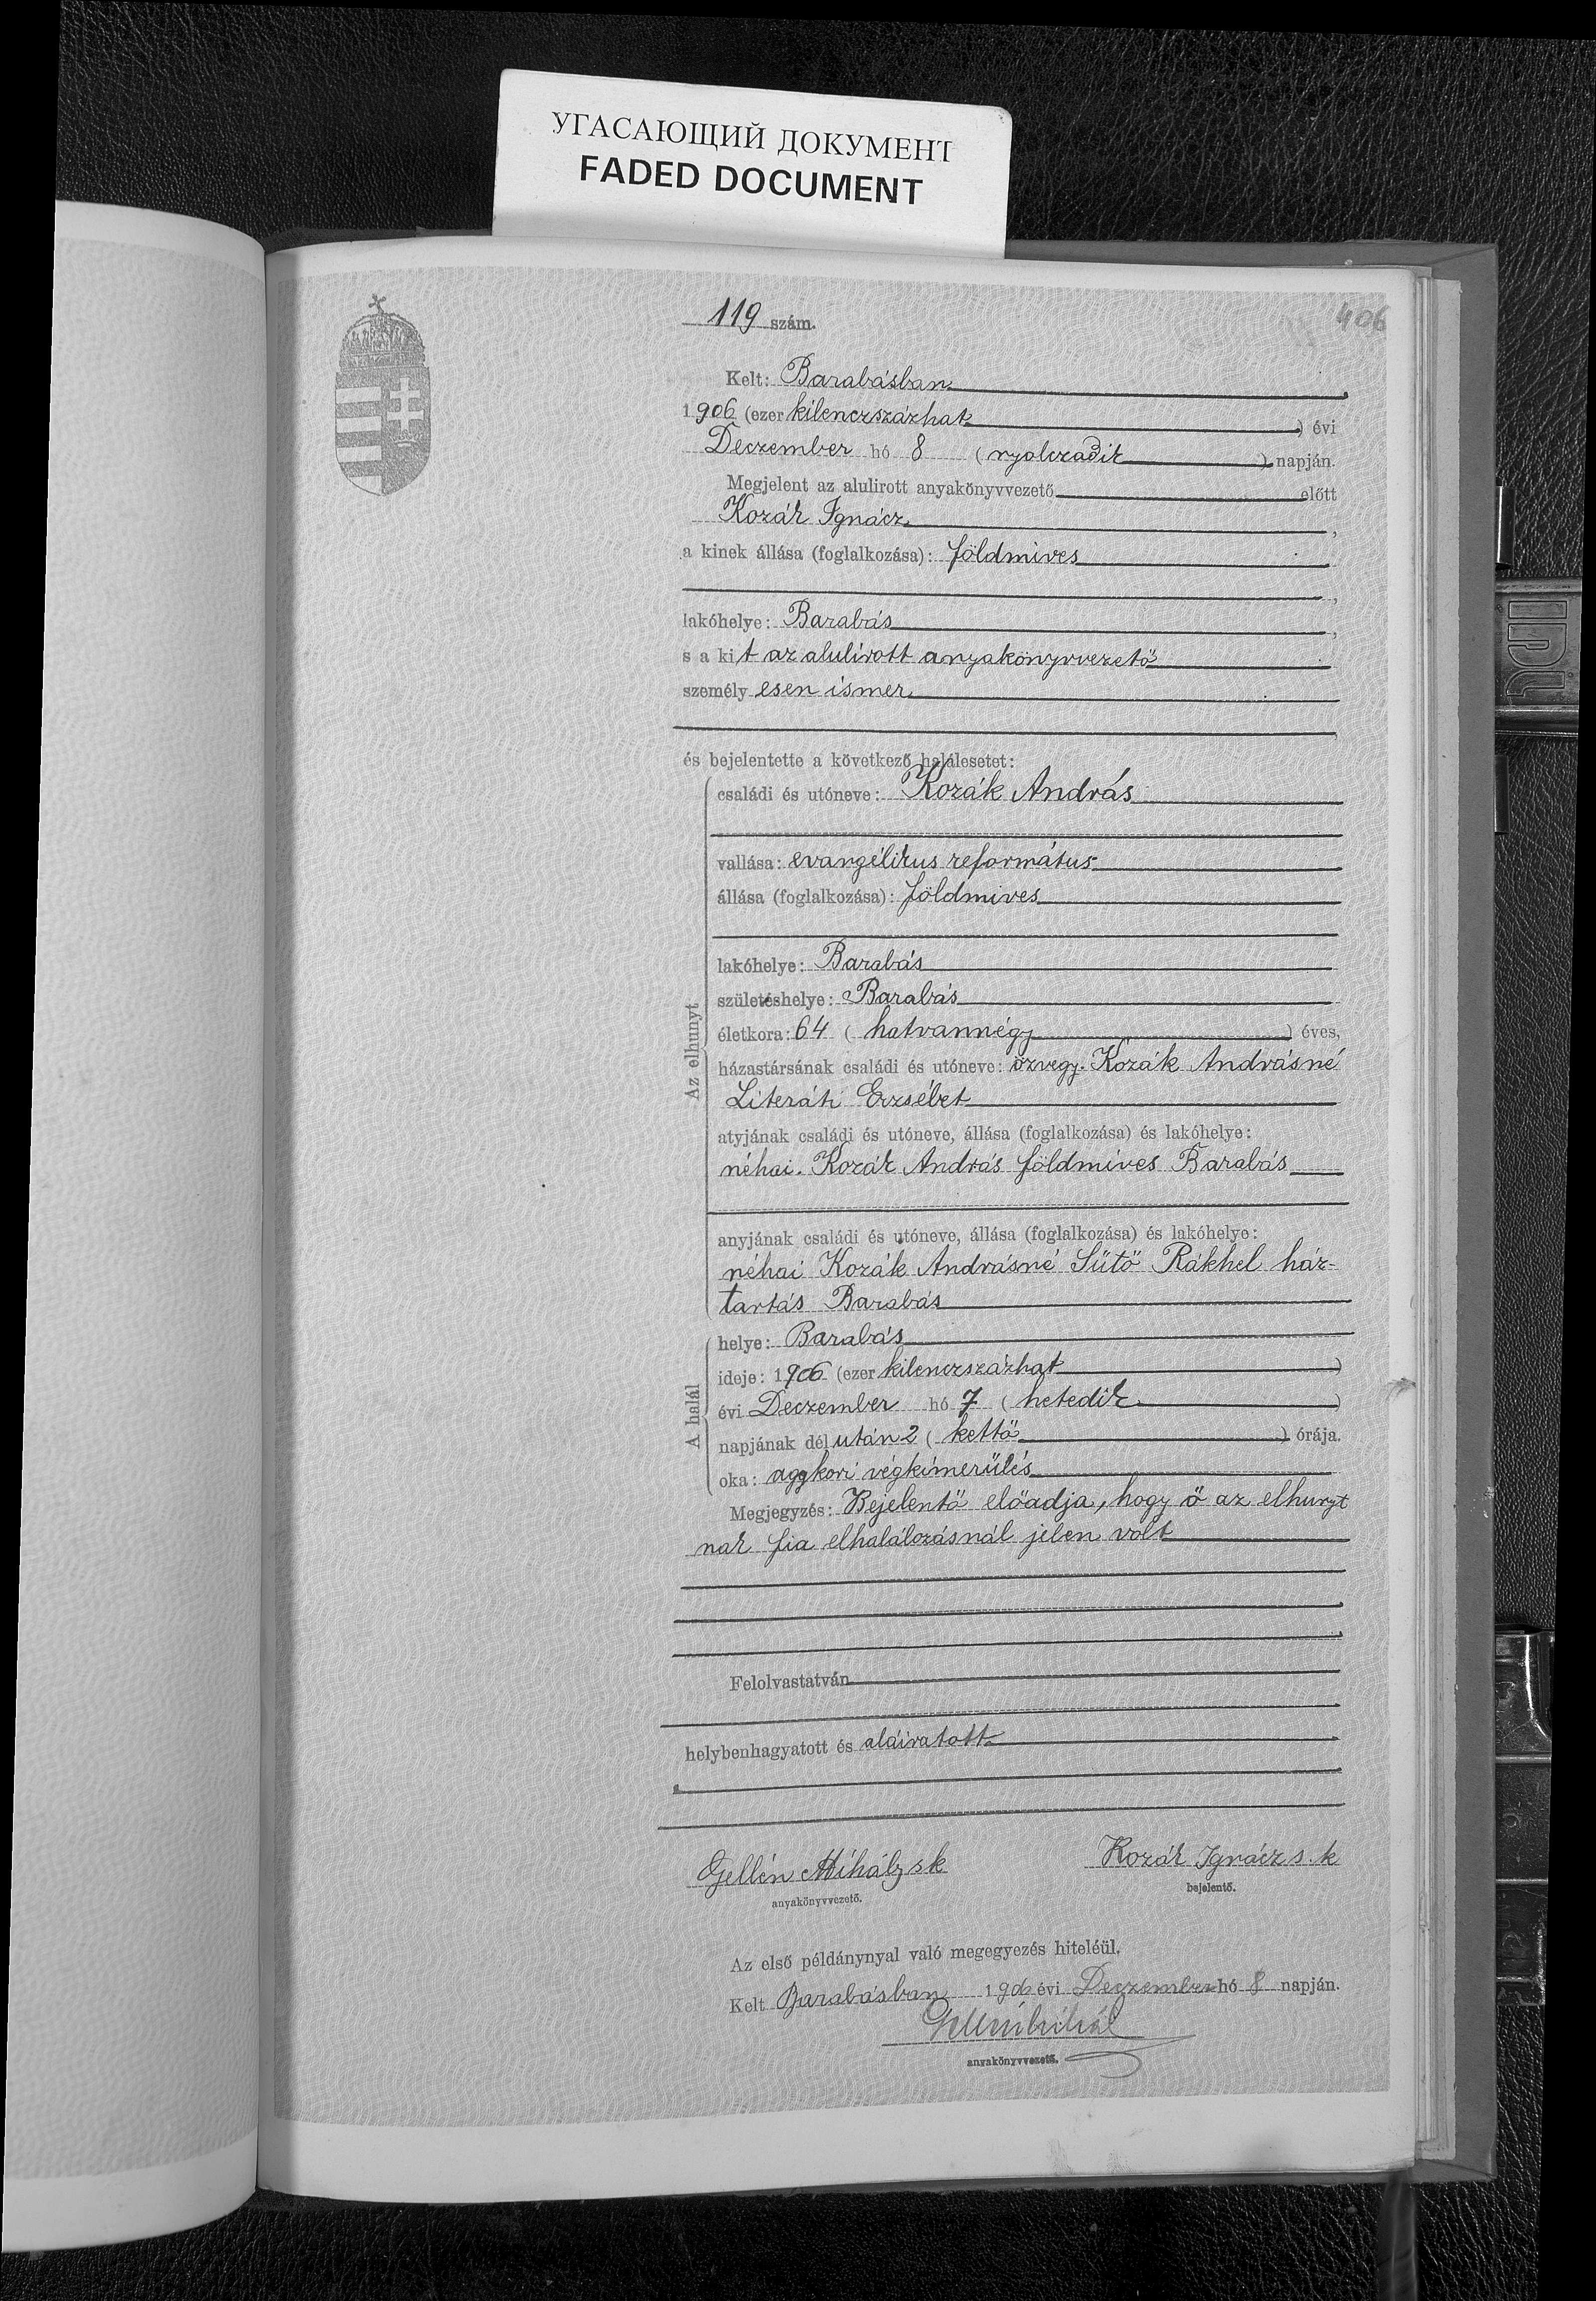 УГАСАЮЩИЙ ДОКУМЕНТ
FADED DOCUMENT
406
119 szám.
Kelt: Barabásban
1906 (ezer kilenczszázhat) évi
Deczember hó 8 (nyolczadik) napján.
Megjelent az alulirott anyakönyvvezető előtt
Kozák Ignácz,
a kinek állása (foglalkozása): földmives
lakóhelye: Barabás,
s a kit az alulirott anyakönyvvezető
személyesen ismer,
és bejelentette a következő halálesetet:
Az elhunyt
családi és utóneve: Kozák András
vallása: evangélikus református
állása (foglalkozása): földmives
lakóhelye: Barabás
születéshelye: Barabás
életkora: 64 (hatvannégy) éves,
házastársának családi és utóneve: özvegy. Kozák Andrásné
Literáti Erzsébet
atyjának családi és utóneve, állása (foglalkozása) és lakóhelye:
néhai. Kozák András földmives Barabás
anyjának családi és utóneve, állása (foglalkozása) és lakóhelye:
néhai Kozák Andrásné Sütő Rákhel ház-
tartás Barabás
A halál
helye: Barabás
ideje: 1906 (ezer kilenczszázhat)
évi Deczember hó 7 (hetedik)
napjának dél után 2 (kettő) órája.
oka: aggkori végkimerülés
Megjegyzés: Bejelentő előadja, hogy ő az elhunyt
nak fia elhalálozásnál jelen volt
Felolvastatván
helybenhagyatott és aláiratott
Gellén Mihály sk
anyakönyvvezető.
Kozák Ignácz s. k
bejelentő.
Az első példánynyal való megegyezés hiteléül.
Kelt Barabásban 1906 évi Deczember hó 8 napján.
Gellén Mihály
anyakönyvvezető.